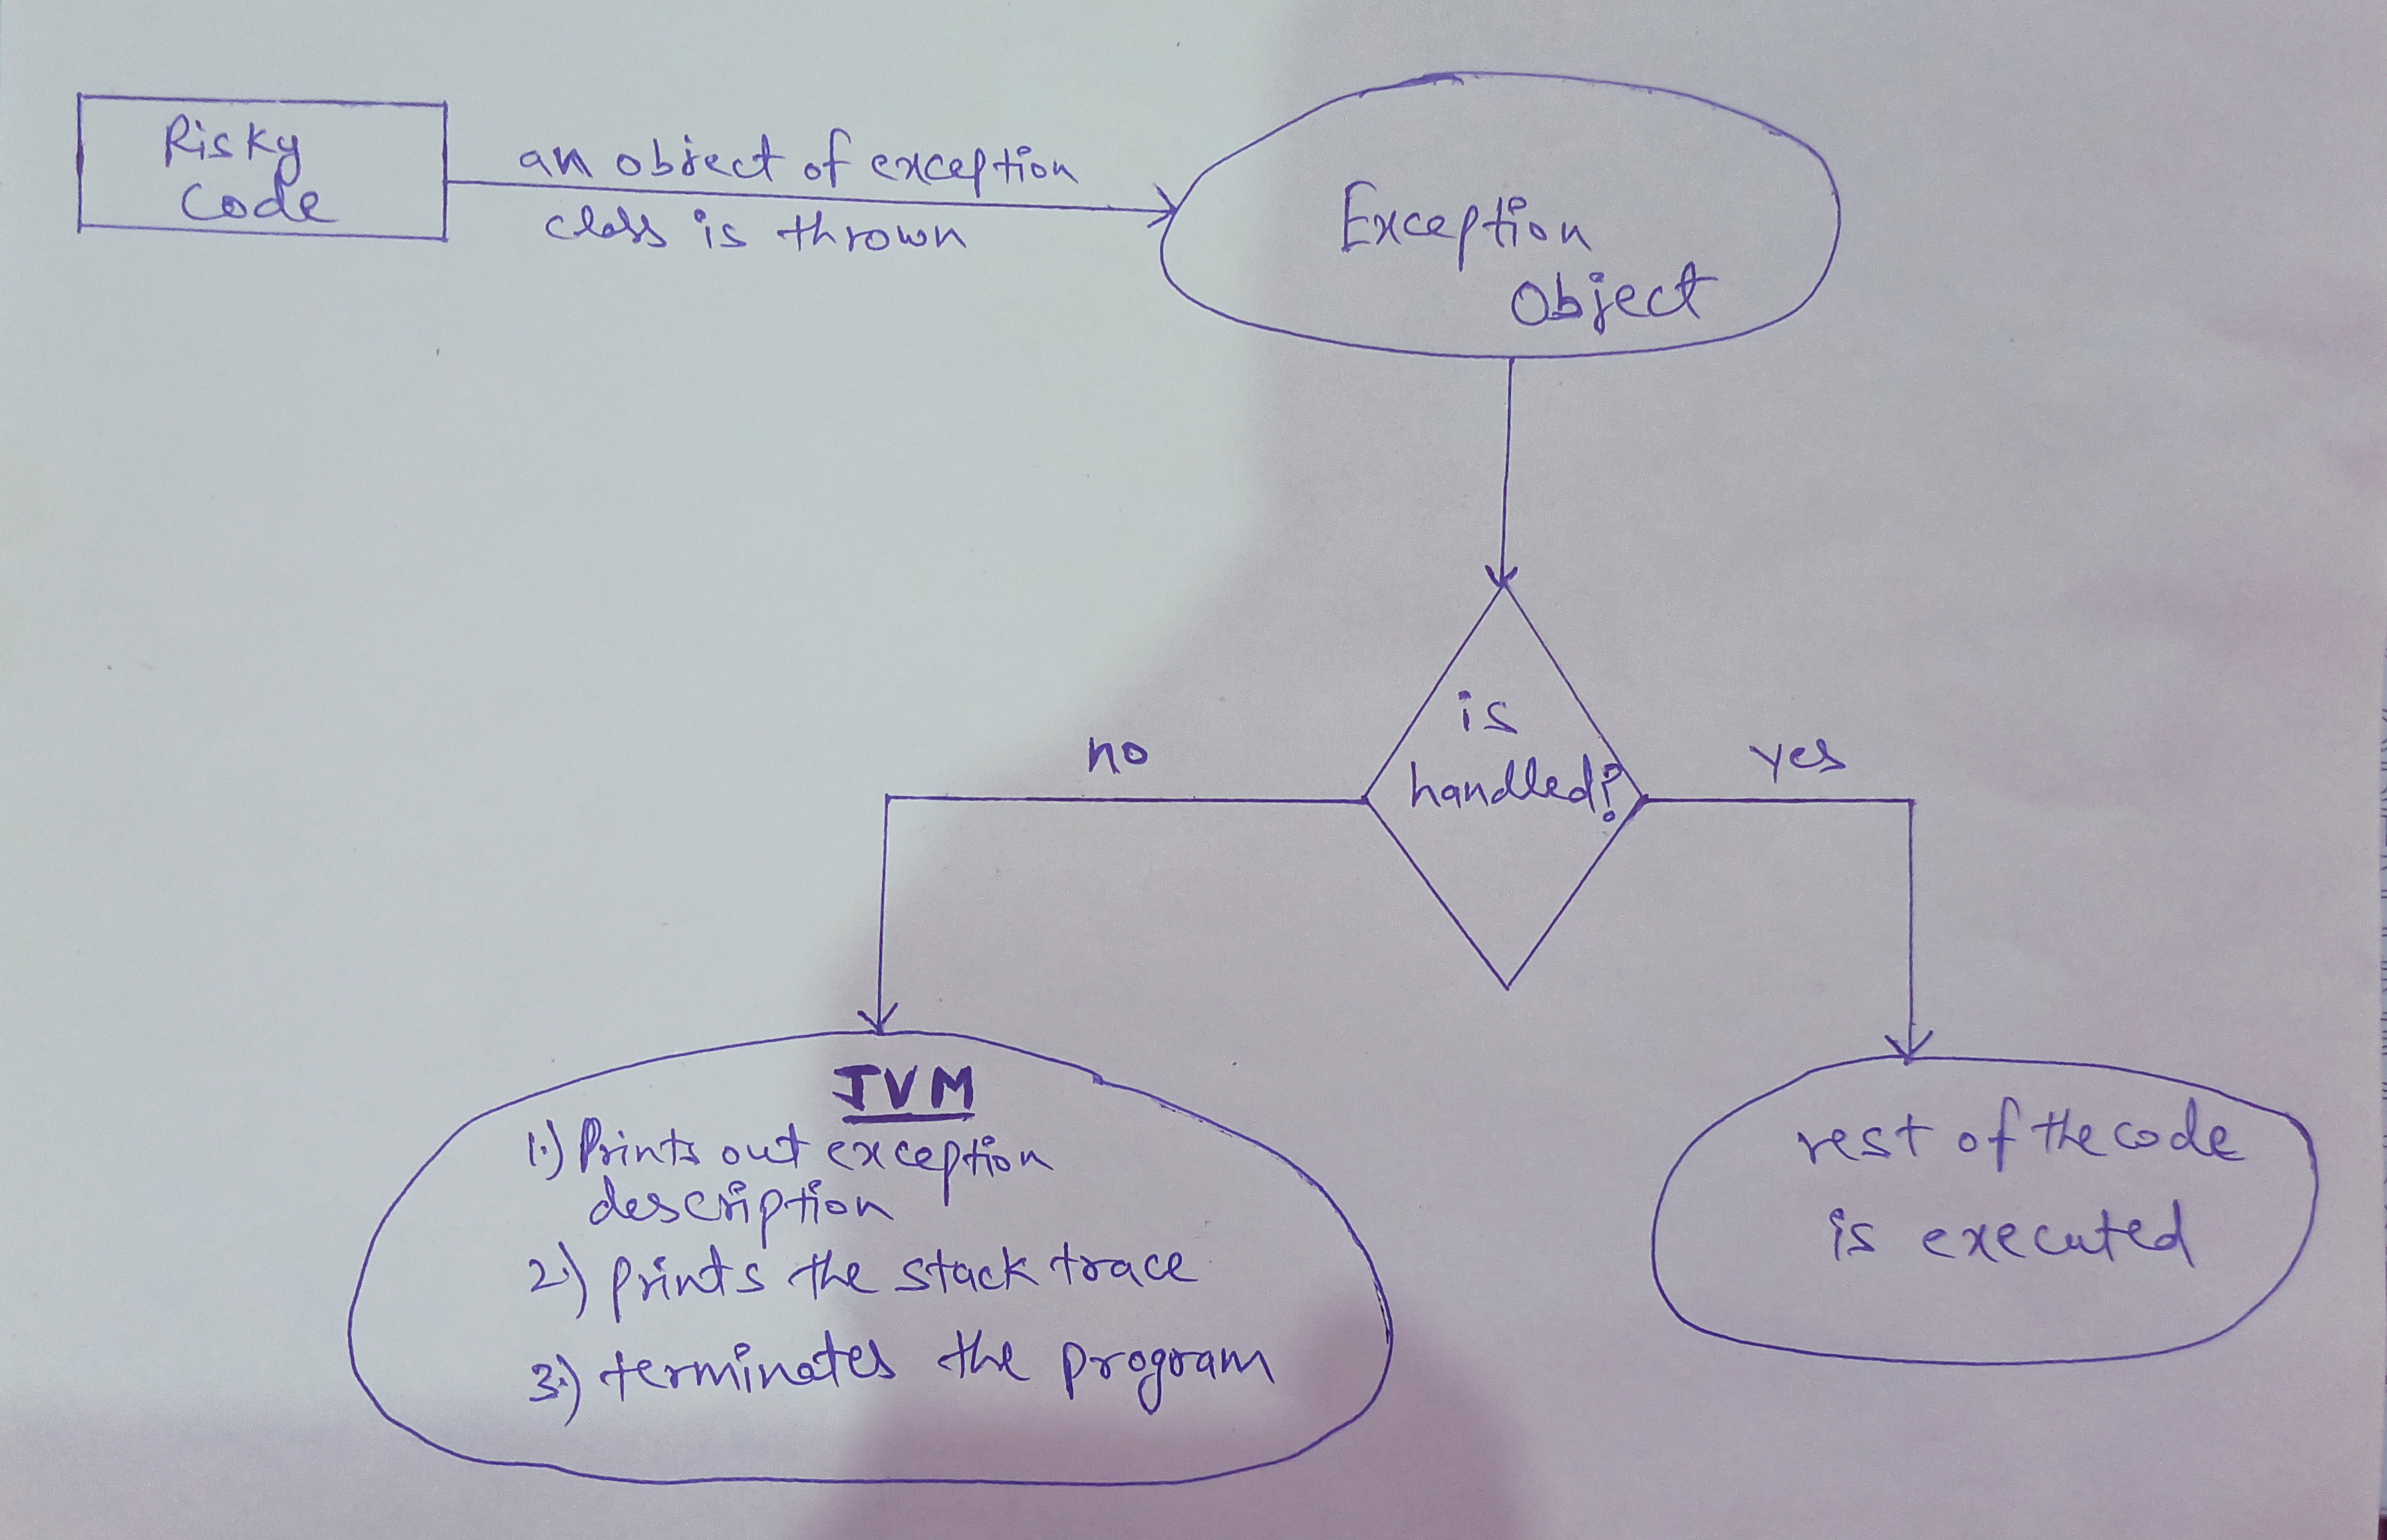 Risky
Code
an object of exception
class is thrown
Exception
Object
is
handled?
no
yes
JVM
1.) Prints out exception
description
2.) prints the stack trace
3.) terminates the program
rest of the code
is executed